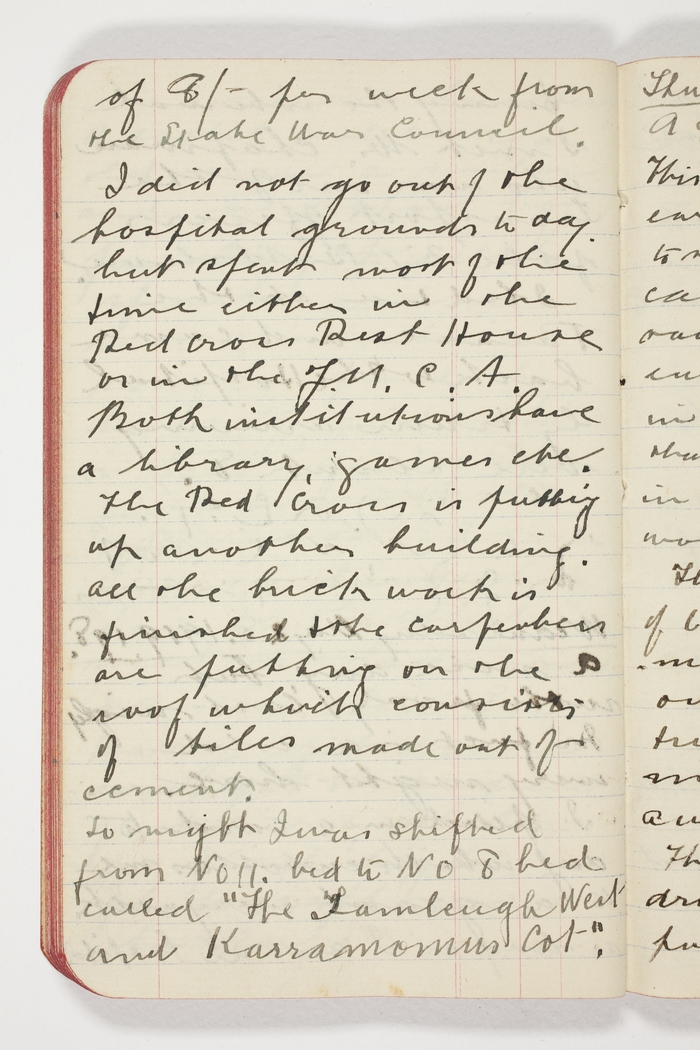 of 8/- per week from
the State War Council.
I did not go out of the
hospital grounds to day.
but spent most of the
time either in the
Red Cross Rest House
or in the Y.M. C. A.
Both institutions have
a library, games etc.
The Red Cross is putting
up another building.
all the brick work is
finished & the carpenters
are putting on the
roof which consists
of tiles made out of
cement.
to night I was shifted
from No 11. bed to No 8 bed
called "The West
and Karramomus Cot".
This
to
in
in
of